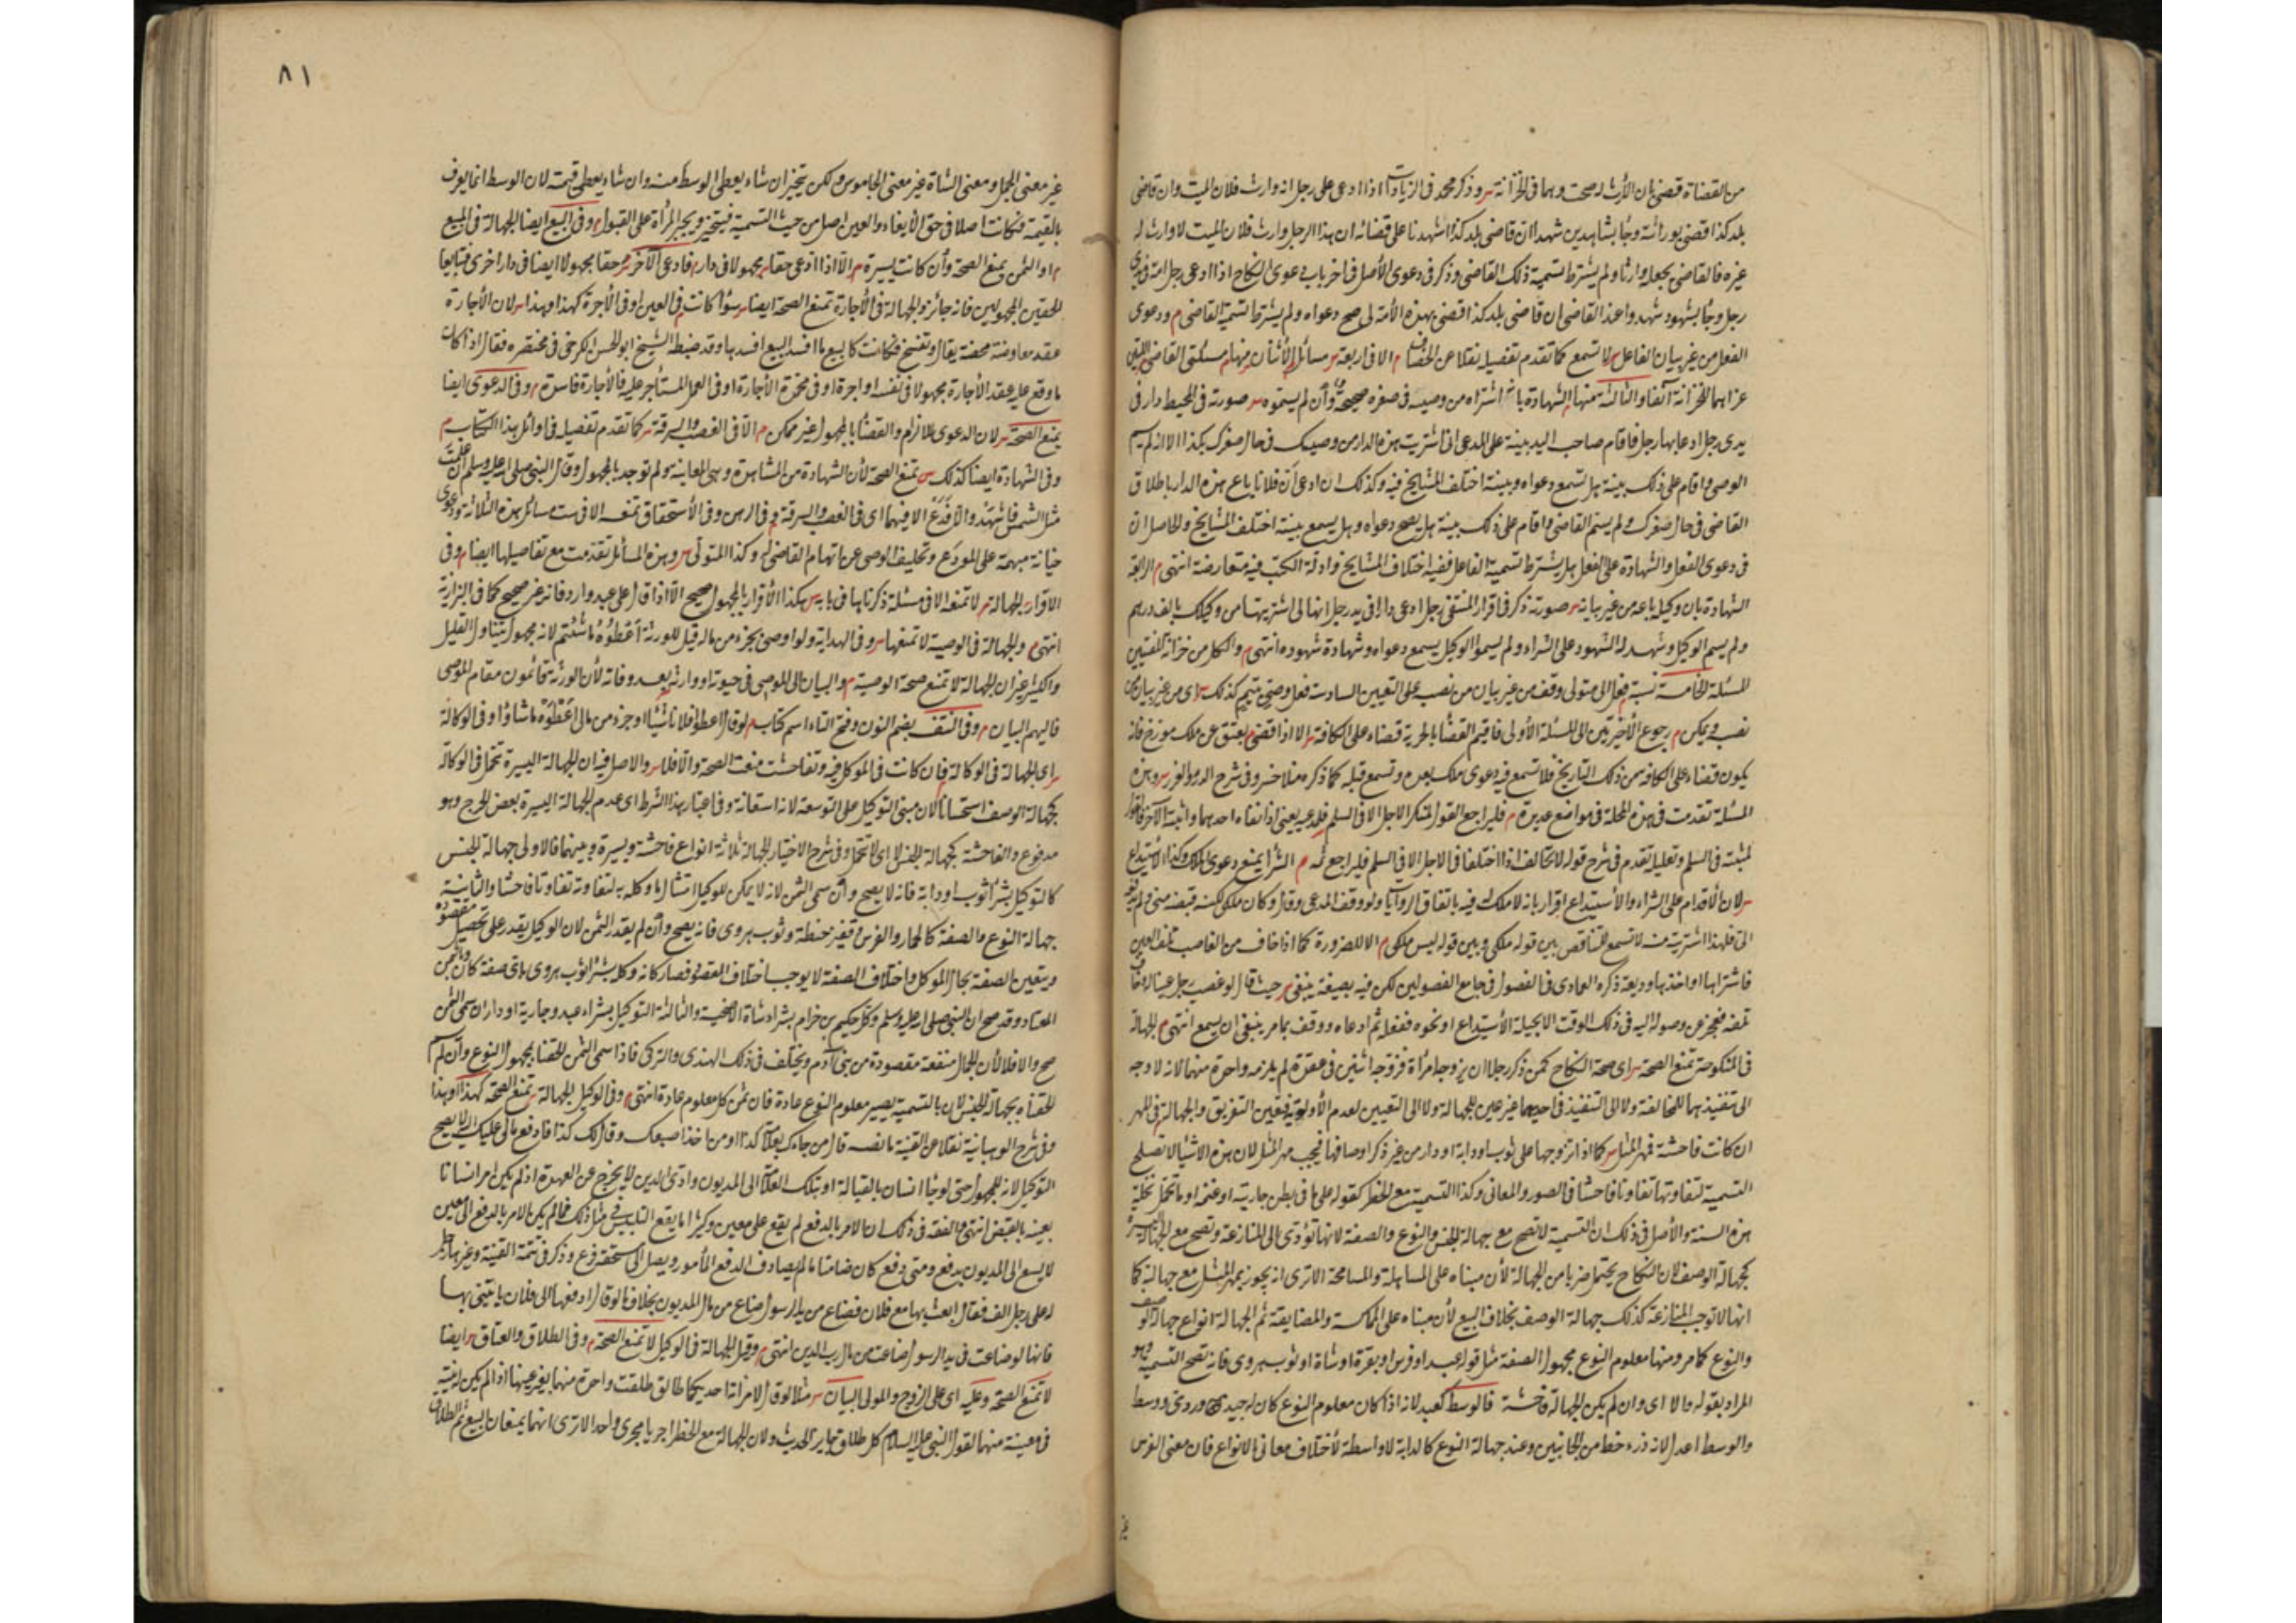 من القضاة قضى بان الأرث له صحت وبها في الخزانة س وذكر محمد في الزيادات اذا ادعى على رجل انه وارث فلان الميت وان قاضي
بلد كذا قضى بوراثته وجاء بشاهدين شهدا ان قاضي بلد كذا اشهدنا على قضائه ان هذا الرجل وارث فلان الميت لا وارث له
غيره فالقاضي يجعله وارثا ولم يشترط تسمية ذلك القاضي وذكر في دعوى الأصل في اخر باب دعوى النكاح اذا ادعى رجل امة في يدي
رجل وجاء بشهود شهدوا عند القاضي ان قاضي بلد كذا قضى بهذه الأمة له صح دعواه ولم يشترط تسمية القاضي م ودعوى
الفعل من غير بيان الفاعل س لا تسمع كما تقدم تفصيله نقلا عن الخصاف م الا في اربعة س مسائل الأثنان منها م مسئلتي القاضي اللتين
عزاهما للخزانة آنفا والثالثة منها م الشهادة بانه اشتراه من وصيه في صغره صحيحة وأن لم يسموه س صورته في المحيط دار في
يدي رجل ادعاها رجل فاقام صاحب اليد بينة على المدعي اني اشتريت هذه الدار من وصيك في حال صغرك بكذا الا انه لم يسم
الوصي واقام على ذلك بينة هل تسمع دعواه وبينته اختلف المشايخ فيه وكذلك ان ادعى أن فلانا باع هذه الدار باطلاق
القاضي في حال صغرك ولم يسم القاضي واقام على ذلك بينة هل يصح دعواه وهل يسمع بينته اختلف المشايخ والحاصل ان
في دعوى الفعل والشهادة على الفعل هل يشترط تسمية الفاعل ففيه اختلاف المشايخ وادلة الكتب فيه متعارضة انتهى م الرابعة
الشهادة بان وكيله باعه من غير بيانه س صورته ذكر في اقرار المنتقى رجل ادعى دارا في يد رجل انها لي اشتريتها من وكيلك بالف درهم
ولم يسم الوكيل وشهد له الشهود على الشراء ولم يسموا الوكيل يسمع دعواه وشهادة شهوده انتهى م والكل من خزانة المفتين
المسئلة الخامسة نسبة فعل الى متولي وقف من غير بيان من نصبه على التعيين السادسة فعل وصي يتيم كذلك س اي من غير بيان من
نصبه ويمكن م رجوع الأخيرتين الى المسئلة الأولى فافهم القضاء بالحرية قضاء على الكافة س الا اذا قضى بعتق عن ملك مورخ فانه
يكون قضاء على الكافة من ذلك التاريخ فلا تسمع فيه دعوى ملك بعده وتسمع قبله كما ذكره منلا خسرو في شرح الدرر والغرر س وهذه
المسئلة تقدمت في هذه المجلة في مواضع عديدة م فليراجع القول لمنكر الاجل الا في السلم فلمدعيه يعني اذا نفاه احدهما واثبته الآخر فالقول
لمثبته في السلم وتعليله تقدم في شرح قوله لا تحالف اذا اختلفا في الاجل الا في السلم فليراجع ثمه م الشراء يمنع دعوى الملك وكذا الأستيداع
س لان الأقدام على الشراء والأستيداع اقرار بانه لا ملك له فيه باتفاق الروايات ولو وقف المدعي وقال وكان ملكي لكنه قبضه مني ولم يدفعه
الي فلهذا اشتريته منه لا تسمع للتناقض بين قوله ملكي وبين قوله ليس ملكي م الا للضرورة كما اذا خاف من الغاصب تلف العين
فاشتراها او اخذها وديعة ذكره العمادي في الفصول في جامع الفصولين لكن فيه بصيغة ينبغي س حيث قال لو غصب رجل عينا وخاف
تلفه فعجز عن وصوله اليه في ذلك الوقت الا بحيلة الأستيداع او نحوه ففعل ثم ادعاه ووقف بما مر ينبغي ان يسمع انتهى م الجهالة
في المنكوحة تمنع الصحة س اي صحة النكاح كمن ذكر رجلا ان يزوجه امرأة فزوجه اثنين في عقدة لم يلزمه واحدة منهما لانه لا وجه
الى تنفيذهما للمخالفة ولا الى التنفيذ في احدهما غير عين للجهالة ولا الى التعيين لعدم الأولوية فتعين التفريق والجهالة م في المهر
ان كانت فاحشة فمهر المثل س كما اذا تزوجها على ثوب او دابة او دار من غير ذكر اوصافها فيجب مهر المثل لان هذه الاشياء لا تصلح
التسمية لتفاوتها تفاوتا فاحشا في الصور والمعاني وكذا التسمية مع الخطر كقوله على ما في بطن جاريته او غنمه او ما تحمل نخله
هذه السنة والأصل في ذلك ان التسمية لا تصح مع جهالة الجنس والنوع والصفة لانها تؤدي الى المنازعة وتصح مع الجهالة اليسيرة
كجهالة الوصف لان النكاح يحتمل ضربا من الجهالة لأن مبناه على المساهلة والمسامحة الا ترى انه يجوز بمهر المثل مع جهالته كما
انها لا توجب المنازعة كذلك جهالة الوصف بخلاف البيع لأن مبناه على المماكسة والمضايقة ثم الجهالة انواع جهالة الوصف
والنوع كما مر ومنها معلوم النوع مجهول الصفة مثل قوله عبد او فرس او بقرة او شاة او ثوب هروي فانه تصح التسمية وهو
المراد بقوله والا اي وان لم يكن الجهالة فاحشة فالوسط كعبد لانه اذا كان معلوم النوع كان له جيد وردئ ووسط
والوسط اعدل لانه ذو حظ من الجانبين وعند جهالة النوع كالدابة لا واسطة لأختلاف معاني الانواع فان معنى الفرس
غير
٨١
غير معنى الجمل ومعنى الشاة غير معنى الجاموس ولكن يتخير ان شاء يعطى الوسط منه وان شاء يعطى قيمته لان الوسط انما يعرف
بالقيمة فكانت اصلا في حق الأيفاء والعين اصل من حيث التسمية فيتخير ويجبر المرأة على القبول م وفي البيع ايضا الجهالة في المبيع
م او الثمن يمنع الصحة وأن كانت يسيرة م الا اذا ادعى حقا س مجهولا في دار م فادعى الآخر س حقا مجهولا ايضا في دار اخرى فتبايعا
الحقين المجهولين فانه جائز والجهالة في الأجارة تمنع الصحة ايضا س سواء كانت م في العين او في الأجرة كهذا او هذا س لان الأجارة
عقد معاوضة محضة يقال وتفسخ فكانت كالبيع ما افسد البيع افسدها وقد ضبطه الشيخ ابو الحسن الكرخي في مختصره فقال اذا كان
ما وقع عليه عقد الأجارة مجهولا في نفسه او اجرة او في مدة الأجارة او في العمل المستأجر عليه فالأجارة فاسدة م وفي الدعوى ايضا
يمنع الصحة س لان الدعوى للالزام والقضاء بالمجهول غير ممكن م الا في الغصب والسرقة س كما تقدم تفصيله في اوائل هذا الكتاب م
وفي الشهادة ايضا كذلك س تمنع الصحة لأن الشهادة من المشاهدة وهي المعاينة ولم توجد بالمجهول وقال النبي صلى الله عليه وسلم ان علمت
مثل الشمس فاشهد والا فدع الا فيهما اي في الغصب والسرقة وفي الرهن وفي الأستحقاق تمنعه الا في ست مسائل هذه الثلاثة ودعوى
خيانة مبهمة على المودع وتحليف الوصي عن اتهام القاضي له وكذا المتولي س وهذه المسائل تقدمت مع تفاصيلها ايضا م وفي
الاقرار الجهالة م لا تمنعه الا في مسئلة ذكرناها في بابه س هكذا الأقرار بالمجهول صحيح الا اذا قال علي عبد او دار فانه غير صحيح كما في البزازية
انتهى م والجهالة في الوصية لا تمنعها س وفي الهداية ولو اوصى بجزء من ماله قيل للورثة أعطوه ما شئتم لانه مجهول يتناول القليل
والكثير غير ان الجهالة لا تمنع صحة الوصية م والبيان الى الموصي في حيوته او وارثه بعد وفاته لأن الورثة قائمون مقام الموصي
فاليهم البيان م وفي النتف بضم النون وفتح التاء اسم كتاب م لو قال اعطوا فلانا شيئا او جزء من مالي اعطوه ما شاؤا وفي الوكالة
س اي الجهالة في الوكالة فإن كانت في الموكل فيه وتفاحشت منعت الصحة والا فلا س والاصل فيه ان الجهالة اليسيرة تتحمل في الوكالة
كجهالة الوصف استحسانا لان مبنى التوكيل على التوسعة لانه استعانة وفي اعتبار هذا الشرط اي عدم الجهالة اليسيرة بعض الحرج وهو
مدفوع والفاحشة كجهالة الجنس اي لا تتحمل وفي شرح الاختيار الجهالة ثلاثة انواع فاحشة ويسيرة وبينهما فالاولى جهالة الجنس
كالتوكيل بشراء ثوب او دابة فانه لا يصح وأن سمى الثمن لانه لا يمكن للوكيل امتثال ما وكله به لتفاوته تفاوتا فاحشا والثانية
جهالة النوع والصفة كالحمار والفرس وقفيز حنطة وثوب هروي فانه يصح وأن لم يقدر الثمن لان الوكيل يقدر على تحصيل مقصوده
ويتعين الصفة بحال الموكل واختلاف الصفة لا يوجب اختلاف المقصود فصار كانه وكله بشراء ثوب هروي باي صفة كان
المعتاد وقد صح ان النبي صلى الله عليه وسلم وكل حكيم بن حزام بشراء شاة الأضحية والثالثة التوكيل بشراء عبد وجارية او دار ان سمى الثمن
صح والا فلا لأن الجمال منفعة مقصودة من بني آدم ويختلف في ذلك الهندي والتركي فاذا سمى الثمن الحقناه بمجهول النوع وأن لم
الحقناه بجهالة الجنس لان بالتسمية يصير معلوم النوع عادة فان ثمن كل معلوم عادة انتهى م وفي الوكيل الجهالة س تمنع الصحة كهذا او هذا
وفي شرح الوهبانية نقلا عن القنية ما نصه قال من جاءك بعلامة كذا او من اخذ اصبعك وقال لك كذا فادفع مالي عليك اليه لا يصح
التوكيل لانه للمجهول حتى لو جاء انسان بالقبالة او بتلك العلامة الى المديون وادى الدين لا يخرج عن العهدة اذ لم يكن امر انسانا
بعينه بالقبض انتهى والفقه في ذلك ان الامر بالدفع لم يقع على معين وكثيرا ما يقع التلبيس في مثل ذلك فما لم يكن الامر بالدفع الى معين
لا يسع الى المديون يدفع ومتى دفع كان ضامنا ما لم يصادف الدفع المأمور ويصل الى مستحقه فرع وذكر في تتمة القنية وغيرها رجل
له على رجل الف فقال ابعث بها مع فلان فضاع من يد الرسول ضاع من مال المديون بخلاف ما لو قال ادفعها الى فلان يأتيني بها
فانها لو ضاعت في يد الرسول ضاعت من مال رب الدين انتهى م وقيل الجهالة في الوكيل لا تمنع الصحة م وفي الطلاق والعتاق س ايضا
لا تمنع الصحة وعليه اي على الزوج والمولى البيان س مثلا لو قال لامرأته احديكما طالق طلقت واحدة منهما بغير عينها اذا لم يكن له نية
في معينة منهما لقول النبي عليه السلام كل طلاق جائز الحديث ولان الجهالة مع الخطر اجريا مجرى واحد الا ترى انهما يمنعان البيع ثم الطلاق